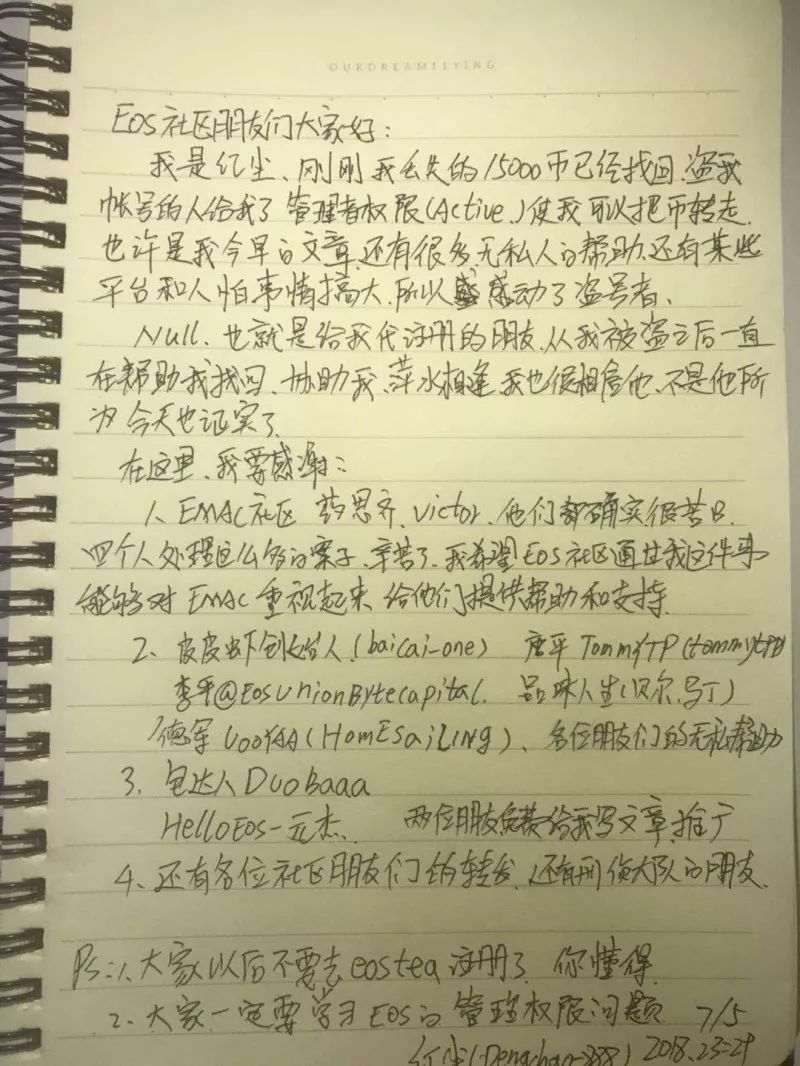 OURDREAMFLYING
EOS社区朋友们大家好:
我是红尘、刚刚我丢失的15000币已经找回.盗我
帐号的人给我了管理者权限(Active、)使我可以把币转走.
也许是我今早的文章、还有很多无私人的帮助、还有某些
平台和人怕事情搞大、所以感动了盗号者、
Null、也就是给我代注册的朋友、从我被盗之后一直
在帮助我找回、协助我、萍水相逢我也很相信他、不是他所
为今天也证实了
在这里、我要感谢:
1、EMAC社区 思齐、Victor、他们都确实很苦B.
四个人处理这么多的案子、辛苦了、我希望EOS社区通过我这件事
能够对EMAC重视起来、给他们提供帮助和支持.
2、皮皮虾创始人(baicai-one) 唐平TommyTP(tommy
李平@EOSUnionBytecapital、品味人生(贝尔、马丁)
德军 UooYAA(HomEsaiLiNg)、各位朋友们的无私帮助
3、包达人Duobaaa
HelloEos-元杰、 两位朋友免费给我写文章、推广
4、还有各位社区朋友们的转发、还有刑侦大队的朋友.
Ps:1、大家以后不要去eostea注册了、你懂得
2、大家一定要学习EOS的管理权限问题 7/5
红尘 2018.23:29